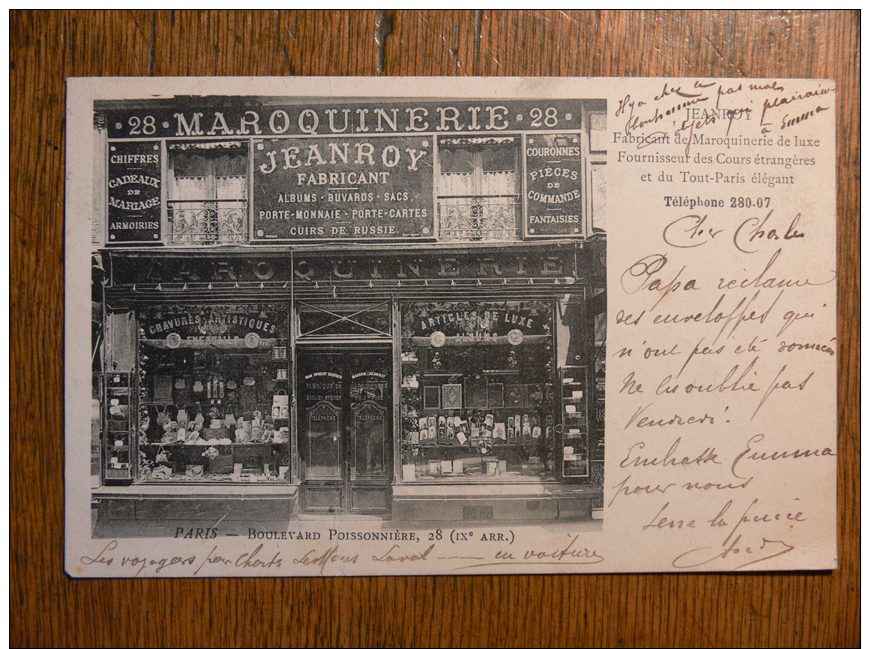 · 28 · MAROQUINERIE · 28 ·
CHIFFRES
CADEAUX
DE
MARIAGE
ARMOIRIES
JEANROY
FABRICANT
ALBUMS · BUVARDS · SACS
PORTE-MONNAIE · PORTE-CARTES
CUIRS DE RUSSIE
COURONNES
PIÈCES
DE
COMMANDE
FANTAISIES
MAROQUINERIE
GRAVURES ARTISTIQUES
ARTICLES DE LUXE
TÉLÉPHONE
TÉLÉPHONE
PARIS — BOULEVARD POISSONNIÈRE, 28 (IXe ARR.)
Il y a chez
pas mal
qui plairaient
à Emma
JEANROY
Fabricant de Maroquinerie de luxe
Fournisseur des Cours étrangères
et du Tout-Paris élégant
Téléphone 280-07
Cher Charles
Papa réclame
des enveloppes qui
n'ont pas été données
Ne les oublie pas
Vendredi.
Embrasse Emma
pour nous
Les voyages par Laval — en voiture